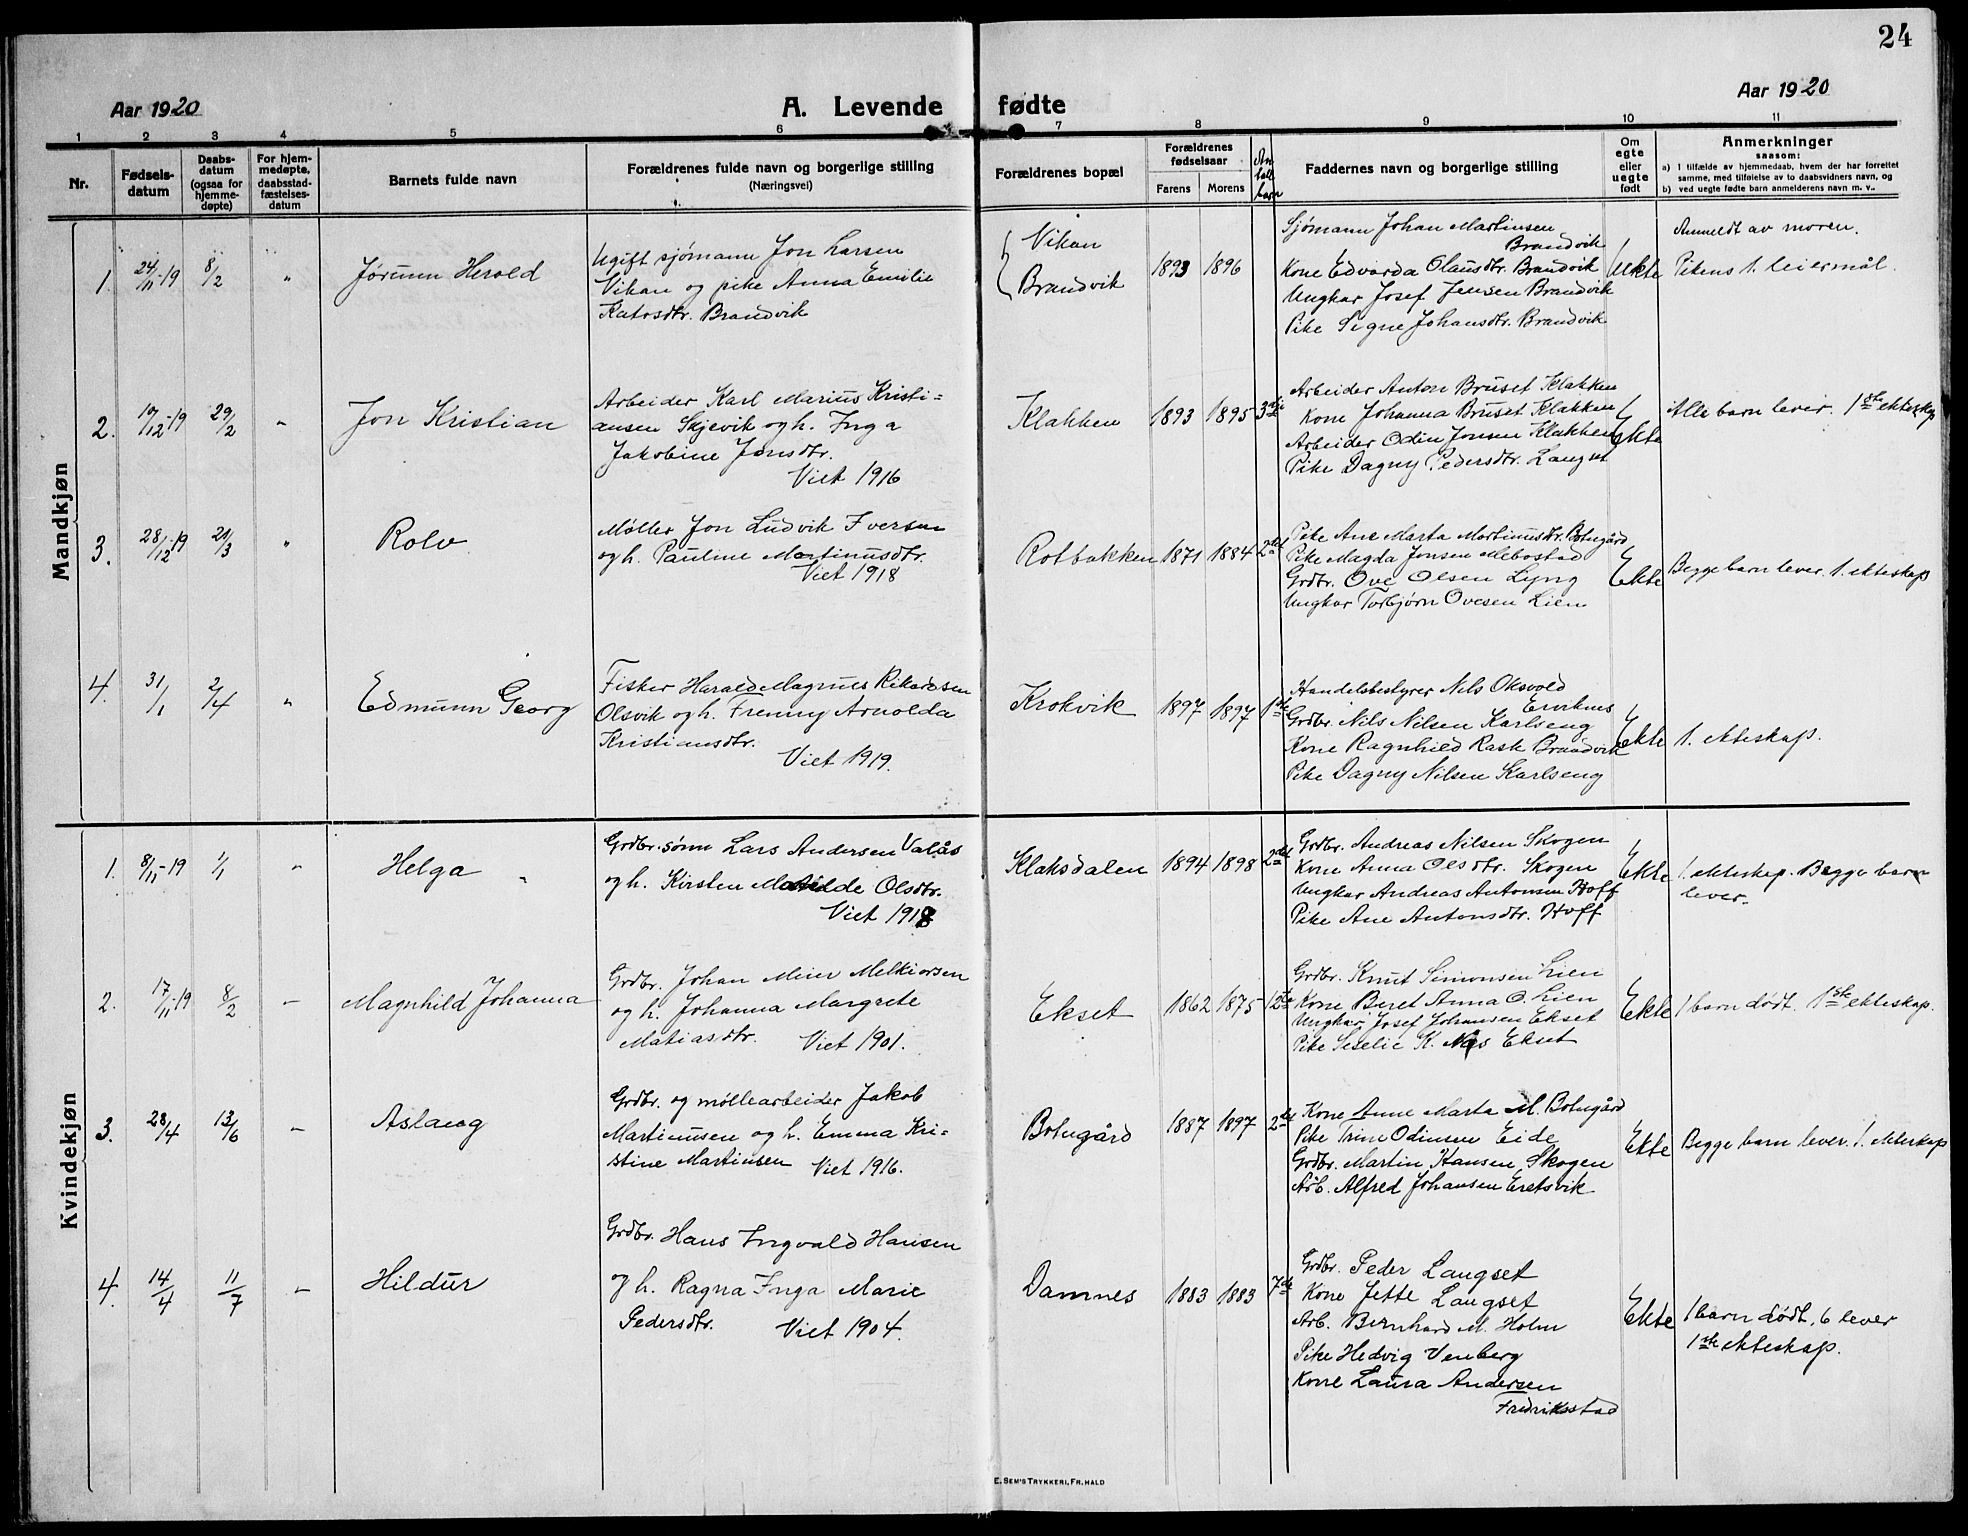 24
Aar 1920
A. Levende fødte
Aar 1920
1 2 3 4 5 6 7 8 9 10 11
Nr.
Fødsels-
datum
Daabs-
datum
(ogsaa for
hjemme-
døpte)
For hjem-
medøpte,
daabsstad-
fæstelses-
datum
Barnets fulde navn
Forældrenes fulde navn og borgerlige stilling
(Næringsvei)
Forældrenes bopæl
Forældrenes
fødselsaar
Farens Morens
An
tall
barn
Faddernes navn og borgerlige stilling
Om
egte
eller
uegte
født
Anmerkninger
saasom:
a) I tilfælde av hjemmedaab, hvem der har forrettet
samme, med tilføielse av to daabsvidners navn, og
b) ved uegte fødte barn anmelderens navn m. v..
Mandkjøn
1. 24/11-19 8/2 "
Jørunn Herold
Ugift sjømann Jon Larsen
Vikan og pike Anna Emilie
Katosdtr. Brandvik
Vikan
Brandvik
1893 1896
Sjømann Johan Martinsen
Brandvik
Kone Edvarda Olausdtr. Brandvik
Ungkar Josef Jensen Brandvik
Pike Signe Johansdtr. Brandvik
Uekte
Anmeldt av moren.
Pikens 1. leiermål.
2. 10/12-19 29/2 "
Jon Kristian
Arbeider Karl Marius Kristi=
ansen Skjevik og h. Inga
Jakobine Jonsdtr.
Viet 1916
Klakken
1893 1895 3die
Arbeider Anton Bruset Klakken
Kone Johanna Bruset Klakken
Arbeider Odin Jonsen Klakken
Pike Dagny Pedersdtr. Langset
Ekte
Alle barn lever. 1ste ekteskap
3. 28/12-19 21/3 "
Rolv
Møller Jon Ludvik Iversen
og h. Pauline Martinusdtr.
Viet 1918
Rotbakken
1871 1884 2det
Pike Ane Marta Martinusdtr. Botngård
Pike Magda Jonsen Mebostad
Grdbr. Ove Olsen Lyng
Ungkar Torbjørn Ovesen Lien
Ekte
Begge barn lever. 1. ekteskap
4. 31/1 2/4 "
Edmunn Georg
Fisker Harald Magnus Rikardsen
Olsvik og h. Frenny Arnolda
Kristiansdtr.
Viet 1919.
Krokvik
1897 1897 1ste
Handelsbestyrer Nils Oksvold
Grdbr. Nils Nilsen Karlseng
Kone Ragnhild Rask Brandvik
Pike Dagny Nilsen Karlseng
Ekte
1. ekteskap.
Kvindekjøn
1. 8/11-19 1/1 "
Helga "
Grdbr.sønn Lars Andersen Valås
og h. Kirsten Matilde Olsdtr.
Viet 1918
Klaksdalen
1894 1898 2det
Grdbr. Andreas Nilsen Skogen
Kone Anna Olsdtr. Skogen
Ungkar Andreas Antonsen Hoff
Pike Ane Antonsdtr. Hoff
Ekte
1. ekteskap. Begge barn
lever.
2. 17/11-19 8/2 –
Magnhild Johanna
Grdbr. Johan Meier Melkiorsen
og h. Johanna Margrete
Matiasdtr. Viet 1901.
Ekset
1862 1875 12te
Grdbr. Knut Simonsen Lien
Kone Beret Anna O. Lien
Ungkar Josef Johansen Ekset
Pike Seselie K. Næs Ekset
Ekte
1 barn dødt. 1ste ekteskap.
3. 28/4 13/6 –
Aslaug
Grdbr. og møllearbeider Jakob
Martinusen og h. Emma Kri-
stine Martinsen Viet 1916.
Botngård
1887 1897 2det
Kone Anne Marta M. Botngård
Pike Trine Odinsen Eide
Grdbr. Martin Hansen Skogen
Arb. Alfred Johansen Eretsvik
Ekte
Begge barn lever. 1. ekteskap
4. 14/4 11/7 –
Hildur
Grdbr. Hans Ingvald Hansen
og h. Ragna Inga Marie
Pedersdtr. Viet 1904.
Damnes
1883 1883 7de
Grdbr. Peder Langset
Kone Jette Langset
Arb. Bernhard M. Holm
Pike Hedvig Venberg
Kone Laura Andersen
Fredriksstad
Ekte
1 barn dødt, 6 lever
1ste ekteskap.
E. SEM'S TRYKKERI, FR.HALD